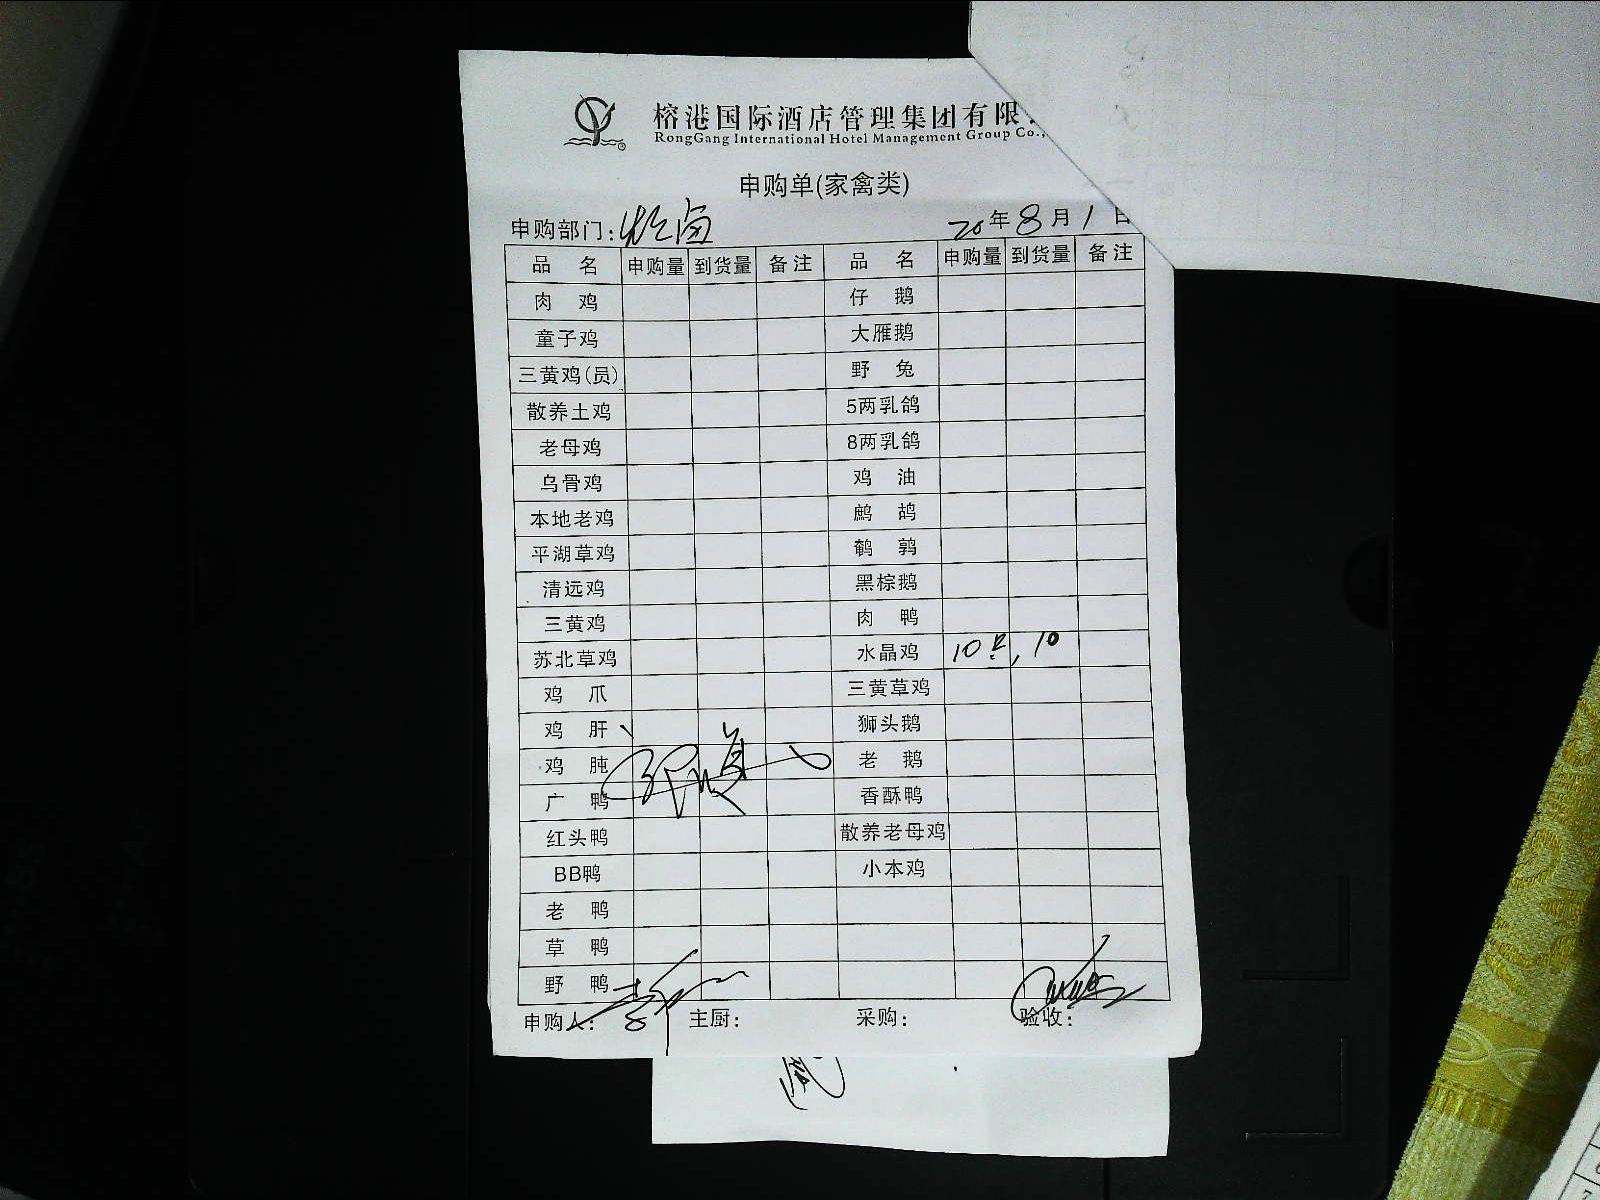 榕港国际酒店管理集团有限
RongGang International Hotel Management Group Co.,
申购单(家禽类)
申购部门: 20年8月1日
品名 申购量 到货量 备注 品名 申购量 到货量 备注
肉鸡 仔鹅
童子鸡 大雁鹅
三黄鸡(员) 野兔
散养土鸡 5两乳鸽
老母鸡 8两乳鸽
乌骨鸡 鸡油
本地老鸡 鹧鸪
平湖草鸡 鹌鹑
清远鸡 黑棕鹅
三黄鸡 肉鸭
苏北草鸡 水晶鸡 10只, 10
鸡爪 三黄草鸡
鸡肝 狮头鹅
鸡肫 老鹅
广鸭 香酥鸭
红头鸭 散养老母鸡
BB鸭 小本鸡
老鸭
草鸭
野鸭
申购人: 主厨: 采购: 验收: